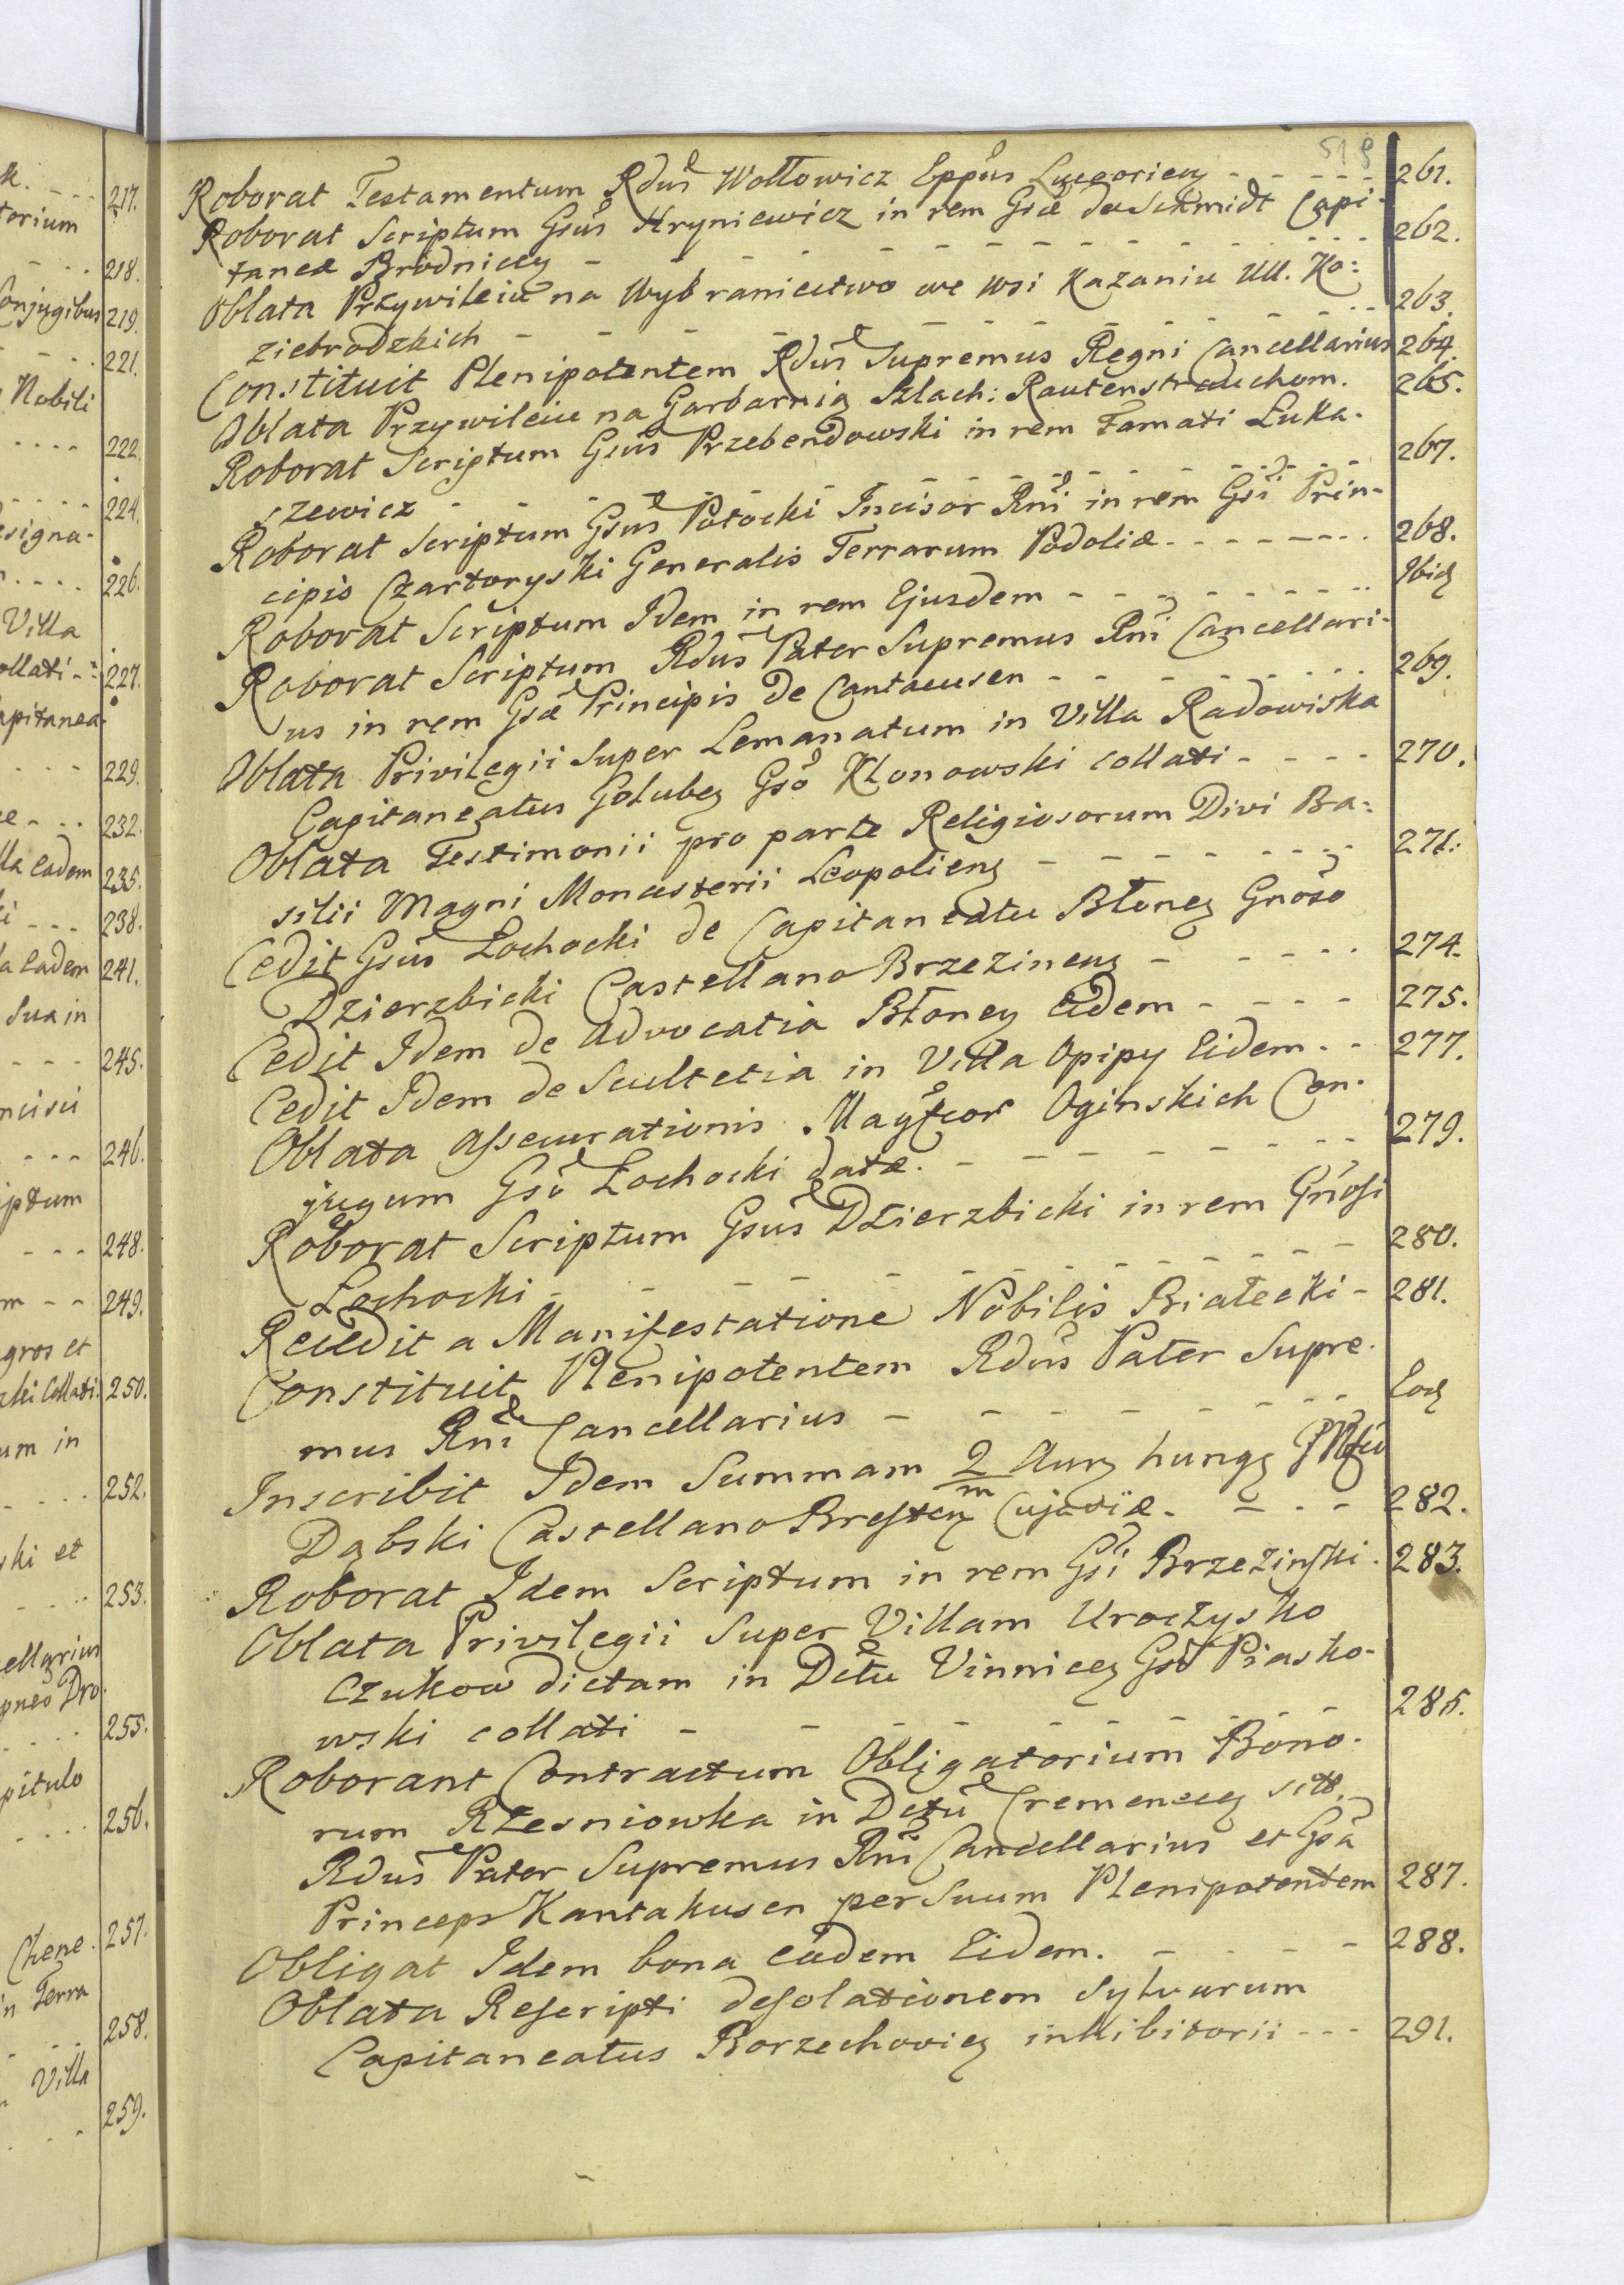 k. - - - 217.
torium
- - - 218.
Conjugibus 219.
- - . 221.
Nobili
- - - - 222.
- - - - 224.
esigna-
- - - - 226.
Villa
ollati - 227.
apitanea-
- - - 229.
e - - . 232.
lla eadem 235.
i - - - 238.
a eadem 241.
Sua in
- - - 245.
ncisci
- - - 246.
iptum
- - - 248.
m - - 249.
gros et
ski Collati. 250.
um in
- - - - 252.
ski et
- - - . 253.
cellarius
pneo Dro-
- - - - 255.
pitulo
- - - - 256.
Chene. 257.
in Terra
- - - . 258.
Villa
- - - 259.
518
Roborat Testamentum Rdus Wołłowicz Eppus Luceoricen - - - - - 261.
Roborat Scriptum Gsus Hryniewicz in rem Gsæ de Schmidt Capi-
taneæ Brodnicen - - - - - - - - - 262.
Oblata Przywileiu na Wybraniectwo we wsi Kazaniu UU. Ko=
ziebrodzkich - - - - - - - - - 263.
Constituit Plenipotentem Rdus Supremus Regni Cancellarius 264.
Oblata Przywileiu na Garbarnią Szlach: Rautenstrauchom. 265.
Roborat Scriptum Gsus Przebendowski in rem Famati Luka-
szewicz - - - - - - - - - 267.
Roborat Scriptum Gsus Potocki Incisor Rni in rem Gsi Prin-
cipis Czartoryski Generalis Terrarum Podoliæ - - - - - - - - 268.
Roborat Scriptum Idem in rem Ejusdem - - - - - - - - - Ibid
Roborat Scriptum Rdus Pater Supremus Rni Cancellari-
us in rem Gsæ Principis de Cantacusen - - - - - - - - 269.
Oblata Privilegii Super Lemanatum in Villa Radowiska
Capitaneatus Goluben Gso Klonowski collati - - - - 270.
Oblata Testimonii pro parte Religiosorum Divi Ba=
silii Magni Monasterii Leopolien - - - - - - - - 271.
Cedit Gsus Łochocki de Capitaneatu Błonen Gnoso
Dzierzbicki Castellano Brzezinen - - - - - 274.
Cedit Idem de Advocatia Błonen Eidem - - - - 275.
Cedit Idem de Scultetia in Villa Opipy Eidem - - 277.
Oblata Assecurationis Magfcor Oginskich Con-
jugum Gso Łochocki datæ. - - - - - - - - 279.
Roborat Scriptum Gsus Dzierzbicki in rem Gnosi
Łochocki - - - - - - - - - 280.
Recedit a Manifestatione Nobilis Białecki - 281.
Constituit Plenipotentem Rdus Pater Supre-
mus Rni Cancellarius - - - - - - - - Eod
Inscribit Idem Summam 2/m Aur hung Mfco
Dąbski Castellano Bresten Cujaviæ. - - - 282.
Roborat Idem Scriptum in rem Gsi Brzezinski. 283.
Oblata Privilegii Super Villam Uroczysko
Czukow dictam in Dctu Vinnicen Gso Piasko-
wski collati - - - - - - - - - 285.
Roborant Contractum Obligatorium Bono-
rum Rzesniowka in Dctu Cremenecen sitt.
Rdus Pater Supremus Rni Cancellarius et Gsa
Princeps Kantakusen per Suum Plenipotentem 287.
Obligat Idem bona eadem Eidem. - - - - - 288.
Oblata Rescripti desolationem Sylvarum
Capitaneatus Borzechovien inhibitorii - - - 291.